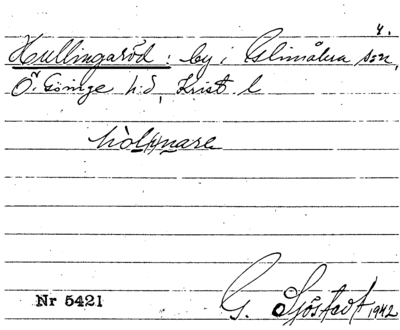 4.
Hullingaröd: by i Glimåkra sn,
Ö. Göinge hd, Krist l
hòl(l)nare
Nr 5421
G. Sjöstedt 1942